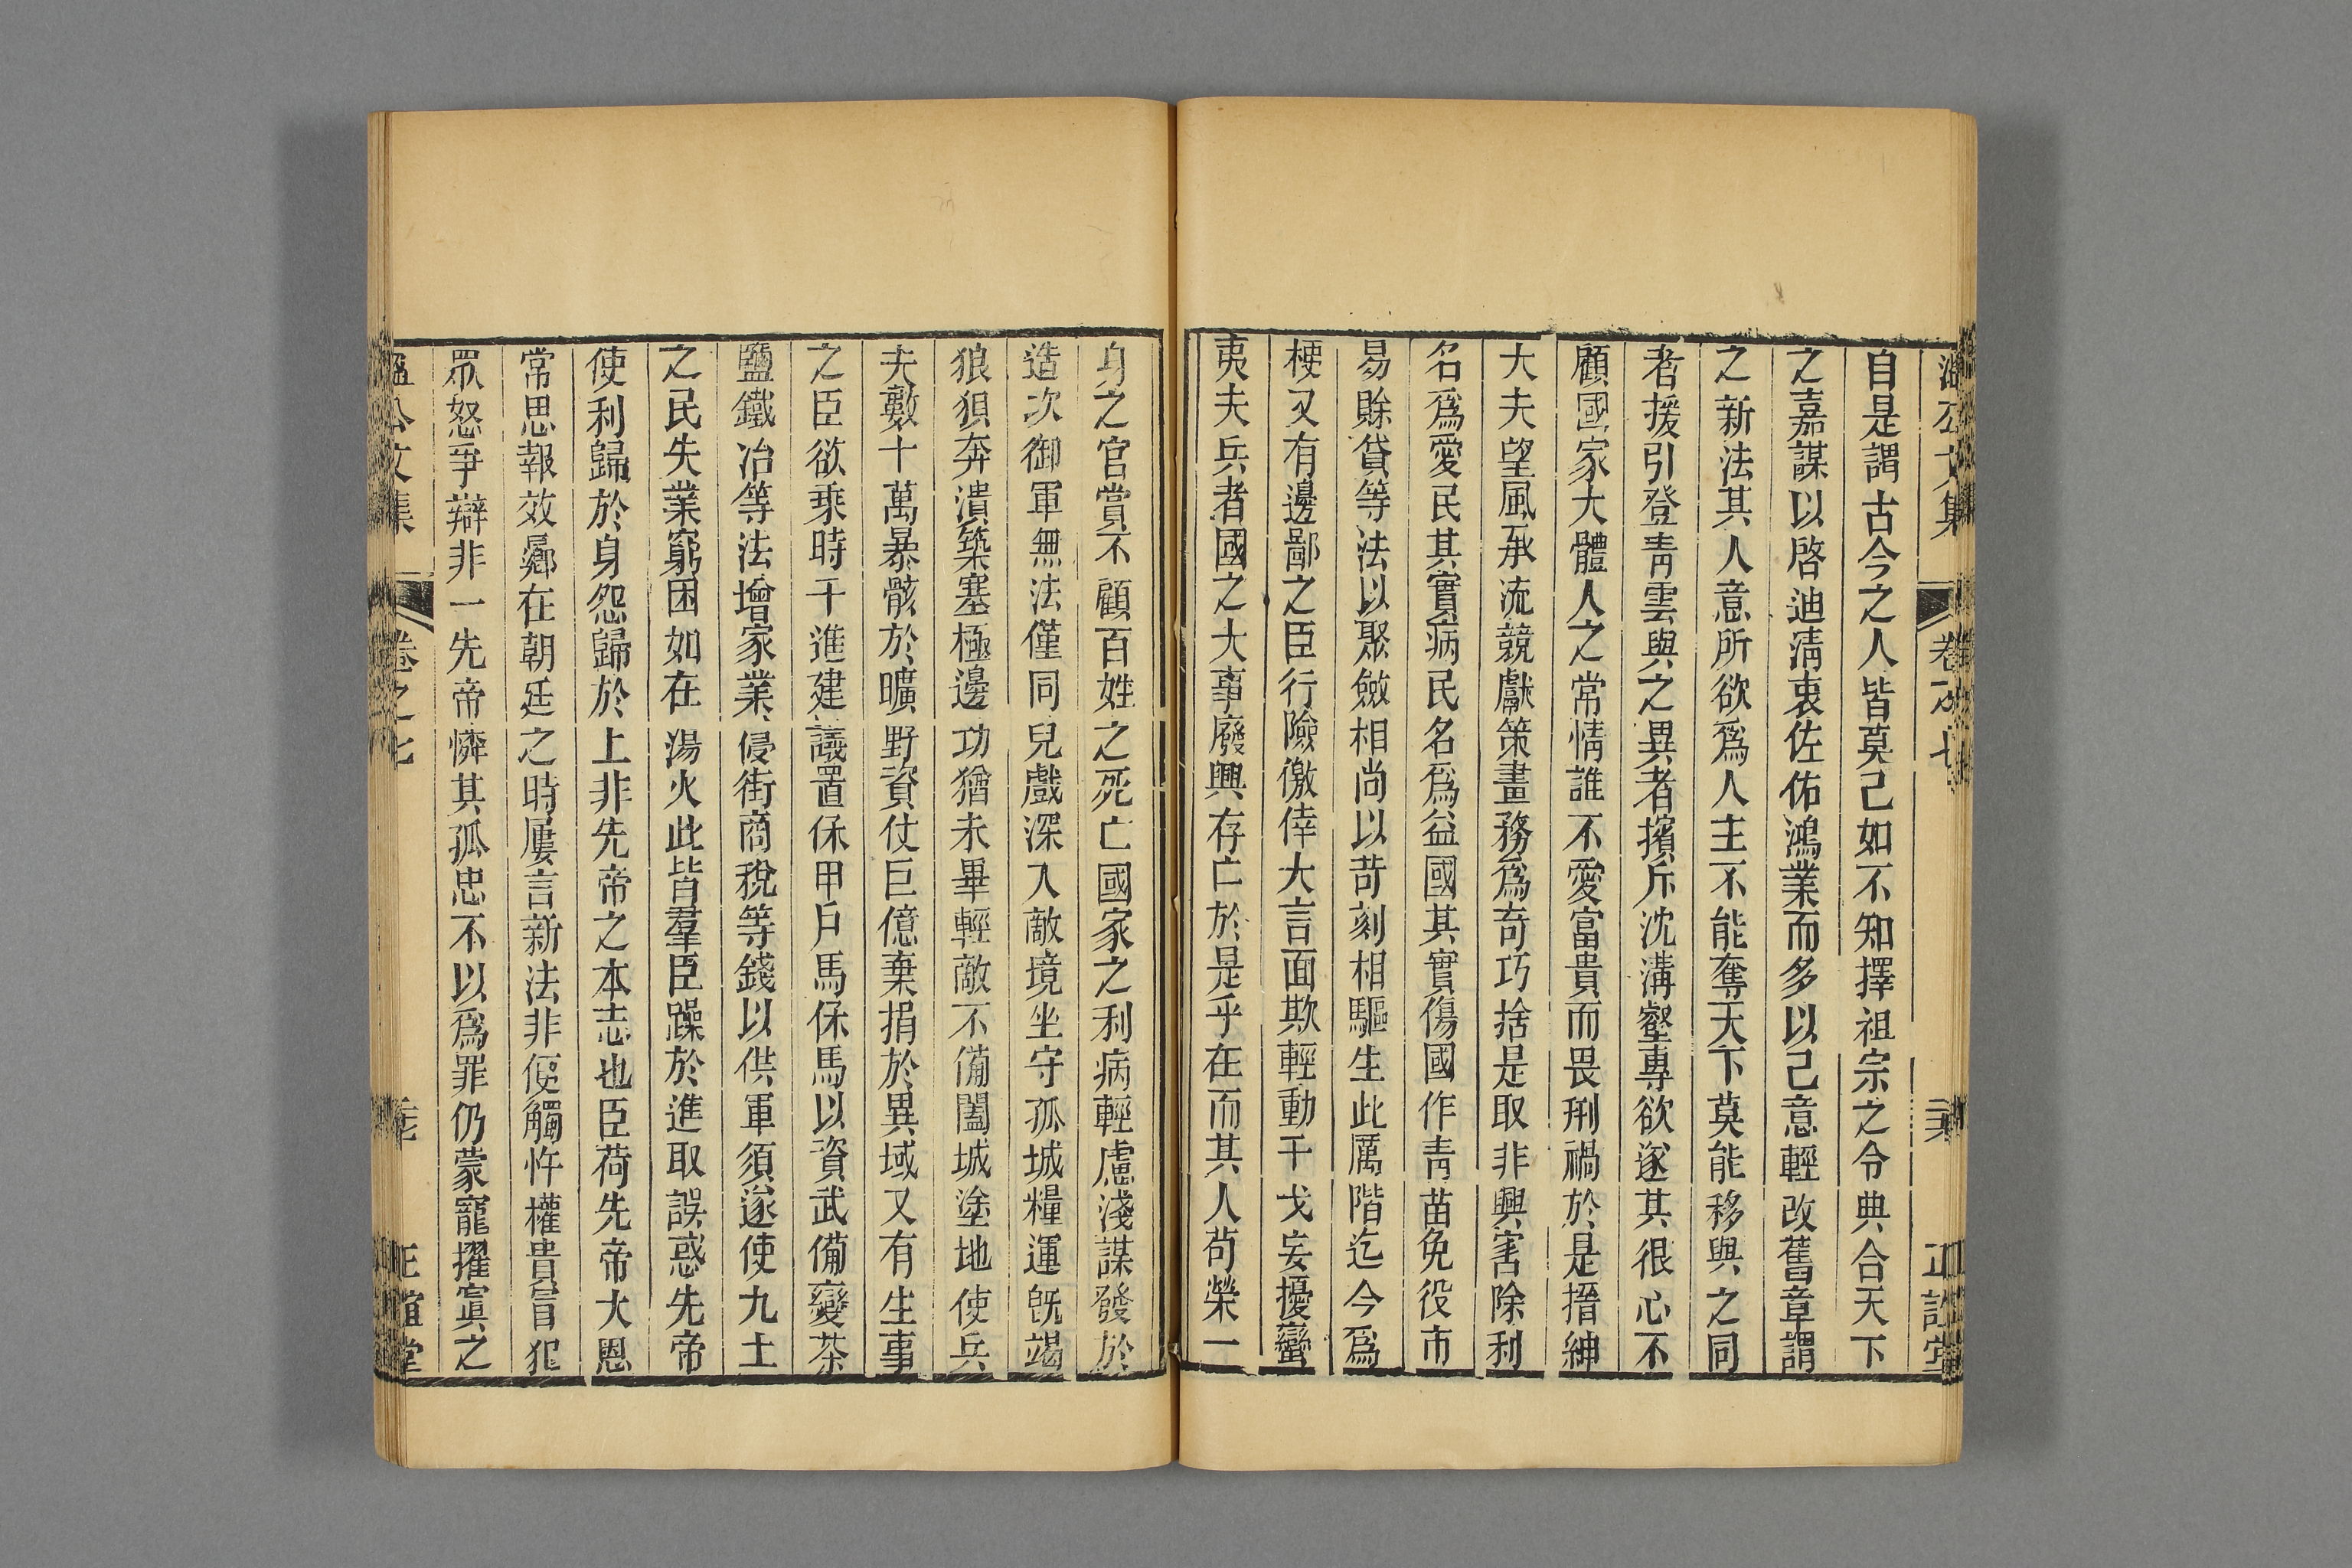 溫公文集 卷之七 正誼堂
自是謂古今之人皆莫己如不知擇祖宗之令典合天下
之嘉謀以啓迪淸衷佐佑鴻業而多以己意輕改舊章謂
之新法其人意所欲爲人主不能奪天下莫能移與之同
者援引登靑雲與之異者擯斥沈溝壑專欲遂其很心不
顧國家大體人之常情誰不愛富貴而畏刑禍於是搢紳
大夫望風承流競獻策畫務爲奇巧捨是取非興害除利
名爲愛民其實病民名爲益國其實傷國作靑苗免役市
易賖貸等法以聚斂相尚以苛刻相驅生此厲階迄今爲
梗又有邊鄙之臣行險儌倖大言面欺輕動干戈妄擾蠻
夷夫兵者國之大事廢興存亡於是乎在而其人苟榮一
身之官賞不顧百姓之死亡國家之利病輕慮淺謀發於
造次御軍無法僅同兒戲深入敵境坐守孤城糧運旣竭
狼狽奔潰築塞極邊功猶未畢輕敵不備闔城塗地使兵
夫數十萬暴骸於曠野資仗巨億棄捐於異域又有生事
之臣欲乘時干進建議置保甲戶馬保馬以資武備變茶
鹽鐵冶等法增家業侵街商稅等錢以供軍須遂使九土
之民失業窮困如在湯火此皆羣臣躁於進取誤惑先帝
使利歸於身怨歸於上非先帝之本志也臣荷先帝大恩
常思報效曏在朝廷之時屢言新法非便觸忤權貴冒犯
眾怒爭辯非一先帝憐其孤忠不以爲罪仍蒙寵擢寘之
溫公文集 卷之七 正誼堂